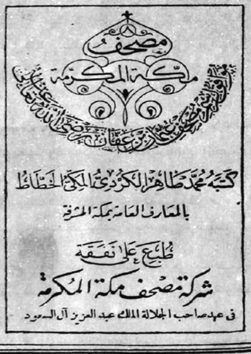 مصحف
مكة المكرمة
عثمان بن عفان رضي الله
كتبه محمد طاهر الكردي المكي الخطاط
بالمعارف العامة بمكة المشرفة
طبع على نفقة
شركة مصحف مكة المكرمة
في عهد صاحب الجلالة الملك عبد العزيز آل السعود